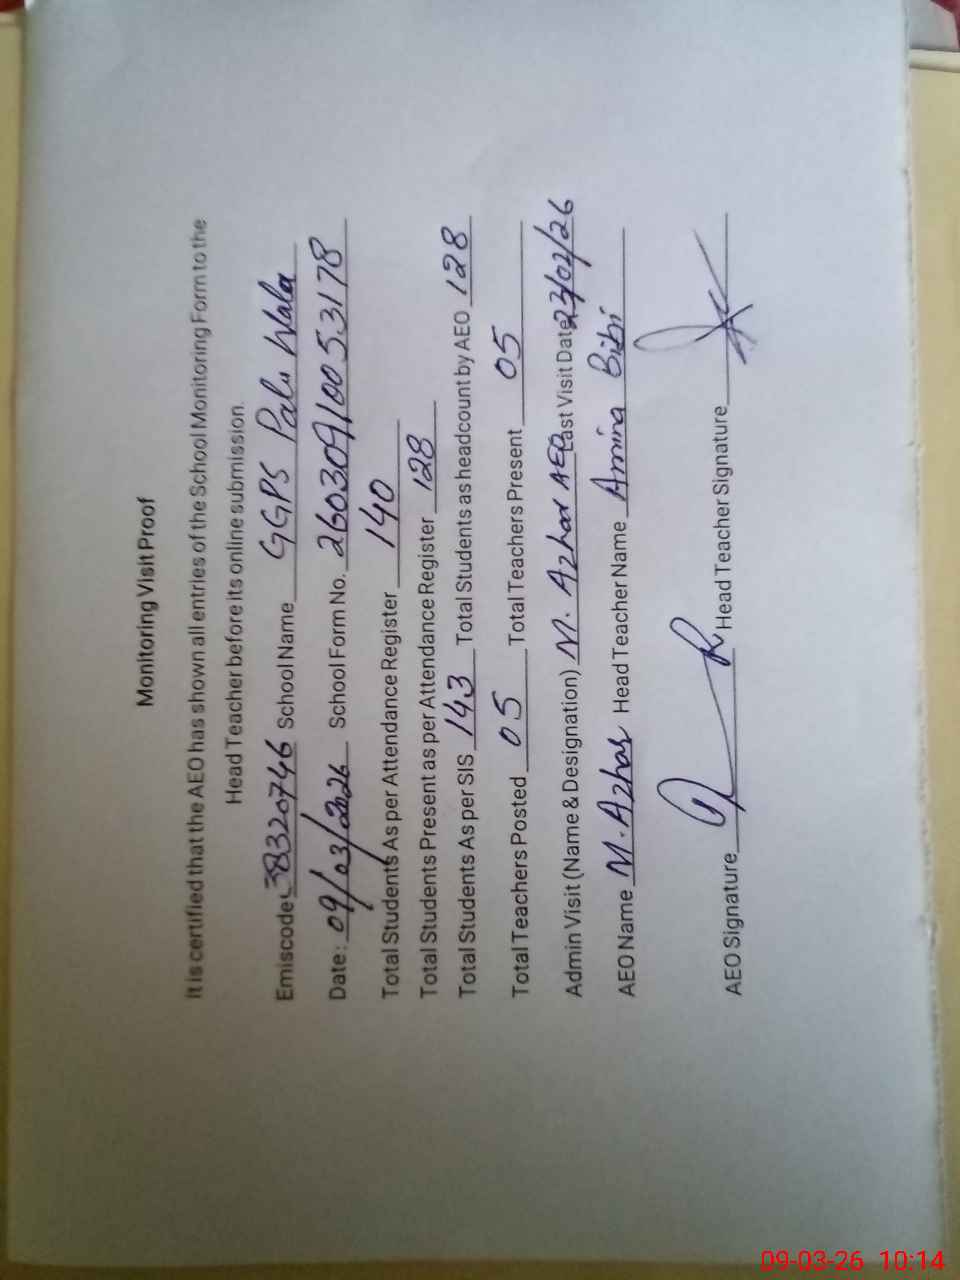 Monitoring Visit Proof
It is certified that the AEO has shown all entries of the School Monitoring Form to the
Head Teacher before its online submission.
Emiscode: 38320746 School Name GGPS Palu Wala
Date: 09/03/2026 School Form No. 2603091005.3178
Total Students As per Attendance Register 140
Total Students Present as per Attendance Register 128
Total Students As per SIS 143 Total Students as headcount by AEO 128
Total Teachers Posted 05 Total Teachers Present 05
Admin Visit (Name & Designation) M. Azhar AEO Last Visit Date 23/02/26
AEO Name M. Azhar Head Teacher Name Amina Bibi
AEO Signature Head Teacher Signature
09-03-26 10:14